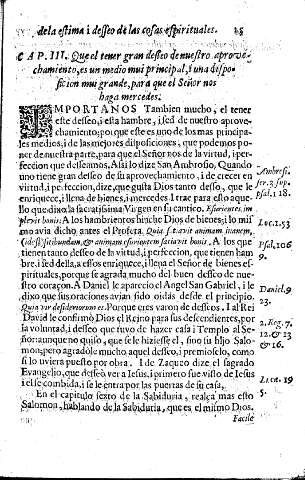 de la estima i desseo de las cosas espirituales. 25
CAP. III. Que el tener gran desseo de nuestro aprove-
chamiento, es un medio mui principal, i una dispo-
sicion mui grande, para que el Señor nos
haga mercedes.
IMPORTANOS Tambien mucho, el tener
este desseo, i esta hambre, i sed de nuestro aprove-
chamiento; porque este es uno de los mas principa-
les medios, i de las mejores disposiciones, que podemos po-
ner de nuestra parte, para que el Señor nos de la virtud, i per-
feccion que desseamos, Assi lo dize San Ambrosio, Quando
uno tiene gran desseo de su aprovechamiento, i de crecer en
virtud, i perfeccion, dize, que gusta Dios tanto desso, que le
enriquece, i llena de bienes, i mercedes. I trae para esto aque-
llo que dixo la sacratissima Virgen en su cantico. Esurientes, im
plevit bonis. A los hambrientos hinche Dios de bienes; i lo mis
mo avia dicho antes el Profeta. Quia satiavit animam inanem,
(idest sitibundam, & animam esurientem satiavit bonis. A los que
tienen tanto desseo de la virtud, i perfeccion, que tienen ham
bre, i sed della, a essos enriquece, i llena el Señor de bienes es-
pirituales, porque se agrada mucho del buen desseo de nues-
tro coraçon. A Daniel le aparecio el Angel San Gabriel, i le
dixo que sus oraciones avian sido oidas desde el principio.
Quia vir desideriorum es. Porque eres varon de dessseos. I al Rei
David le confirmò Dios el Reino para sus decendientes, por
la voluntad, i desseo que tuvo de hazer casa i Templo al Se-
ñor: aunque no quiso, que se le hiziesse el, sino su hijo Salo-
mon; pero agradòle mucho aquel desseo, i premioselo, como
si lo uviera puesto por obra. I de Zaqueo dize el sagrado
Evangelio, que desseò ver a Jesus, i primero fue visto de Jesus
i el se combida, i se le entra por las puertas de su casa,
En el capitulo sexto de la Sabiduria, realça mas esto
Salomon, hablando de la Sabiduria, que es el mismo Dios.
Facilè
Ambros.
ser. 3. sup.
psal. 118.
Luc. 1.53
Psal. 106
9.
Daniel. 9
23.
2. Reg. 7,
12. & 23
& 16.
Luca. 19
5.